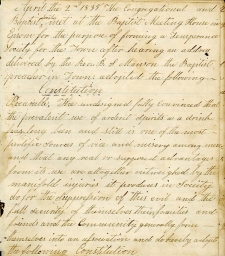 April the 2nd 1833 the Congregational and
Baptist met at the Baptist Meeting House in
for the purpose of forming a temperance
Society for the Town after hearing an address
delivered by the the Baptist
preacher in Town adopted the following
Constitution
Preamble, The undersigned fully convinced that
the prevalent use of ardent spirits as a drink
has long been and still is one of the most
prolific sources of vice and misery among man
kind that any real or supposed advantages
from its use are altogether outweighed by the
manifold injuries it produces in Society
do for the suppression of this evil and the
full security of themselves their families and
friends and the Community generally form
themselves into an association and do hereby adopt
the following Constitution